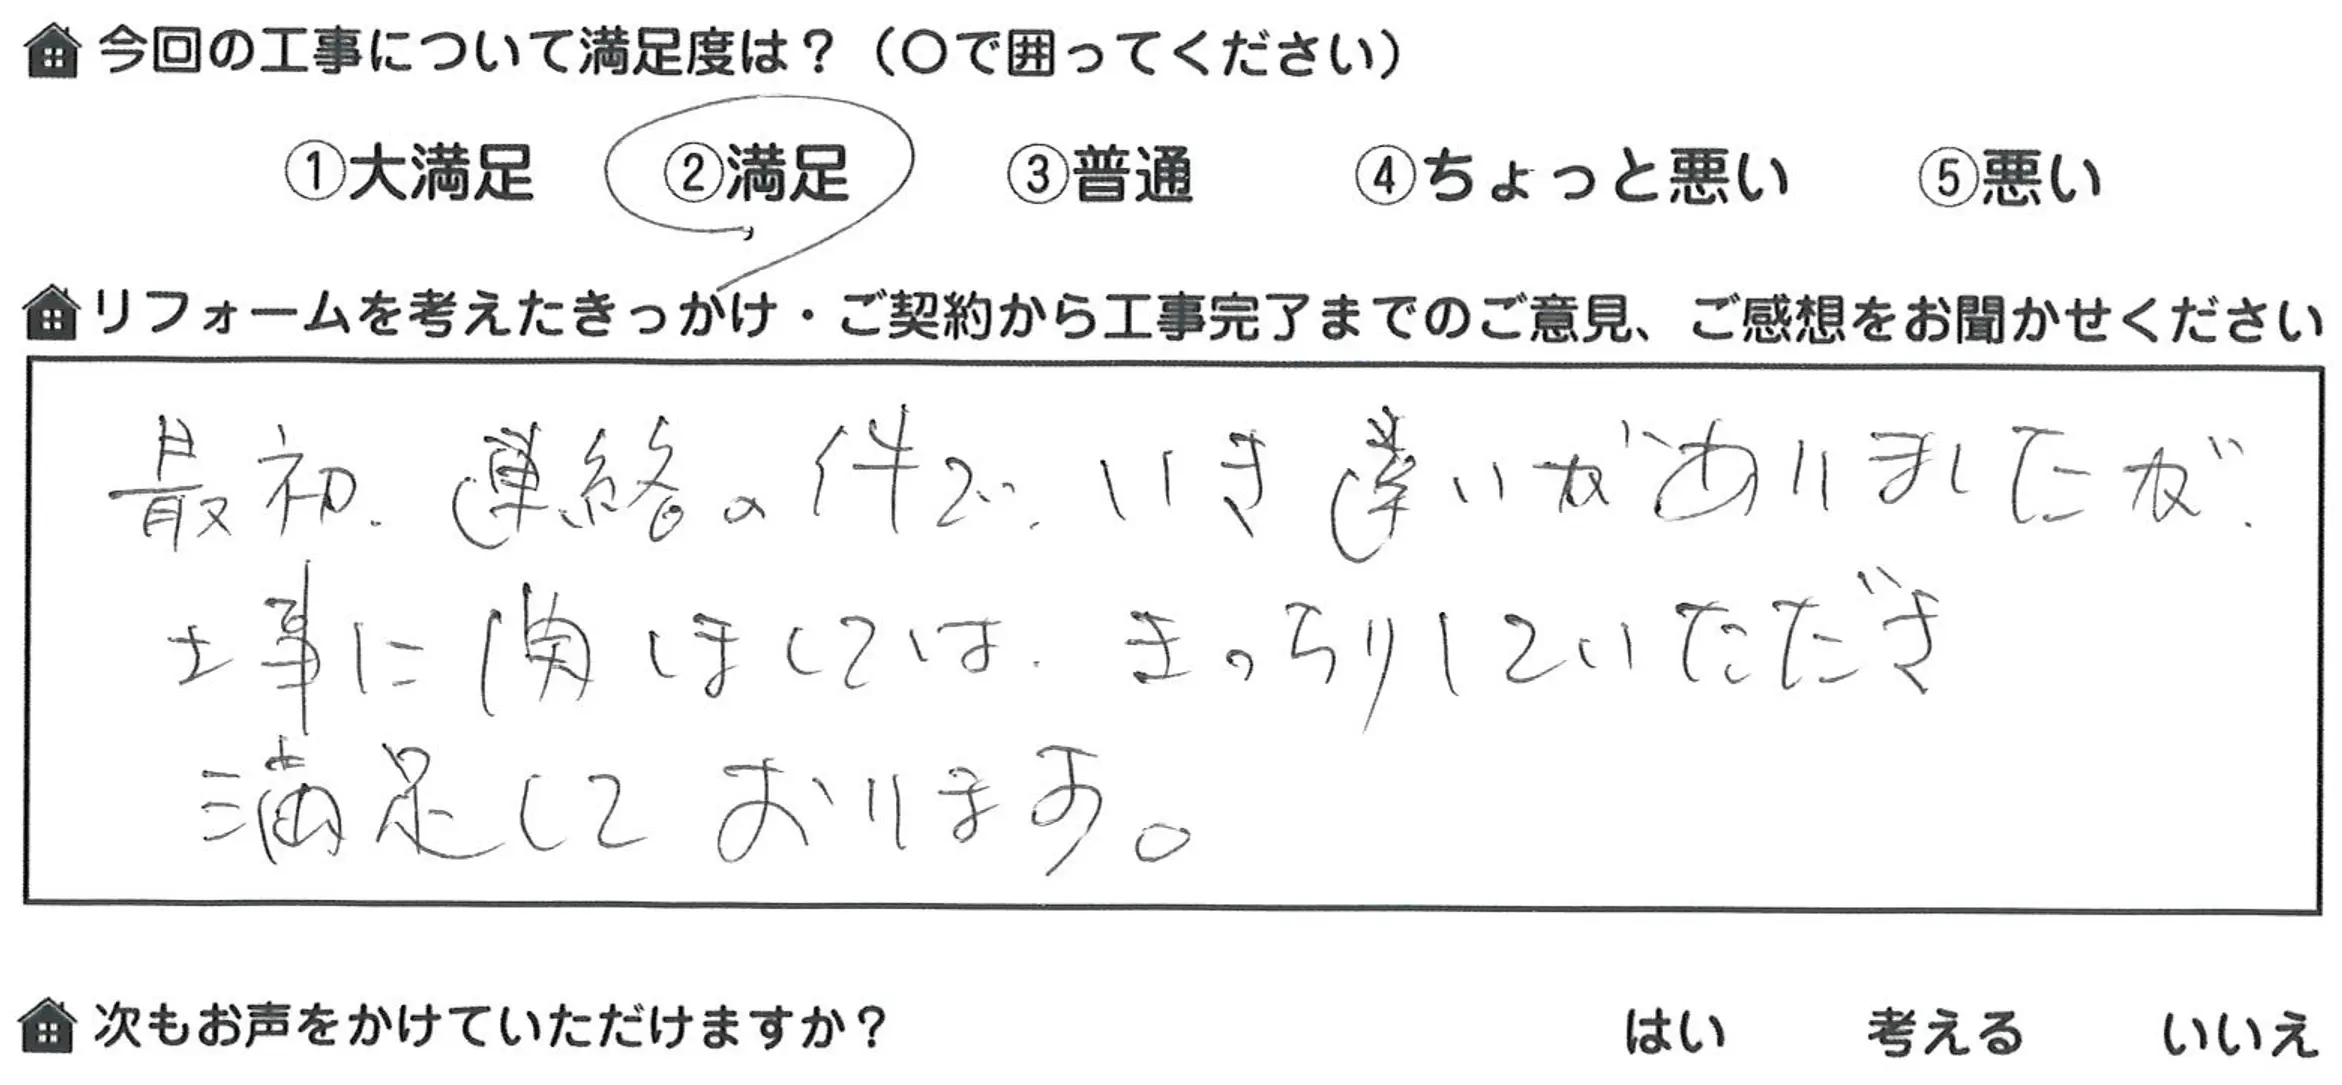 今回の工事について満足度は？（〇で囲ってください）
①大満足 ②満足 ③普通 ④ちょっと悪い ⑤悪い
リフォームを考えたきっかけ・ご契約から工事完了までのご意見、ご感想をお聞かせください
最初、連絡の件で、いき違いがありましたが、
工事に関しましては、きっちりしていただき
満足しております。
次もお声をかけていただけますか？ はい 考える いいえ